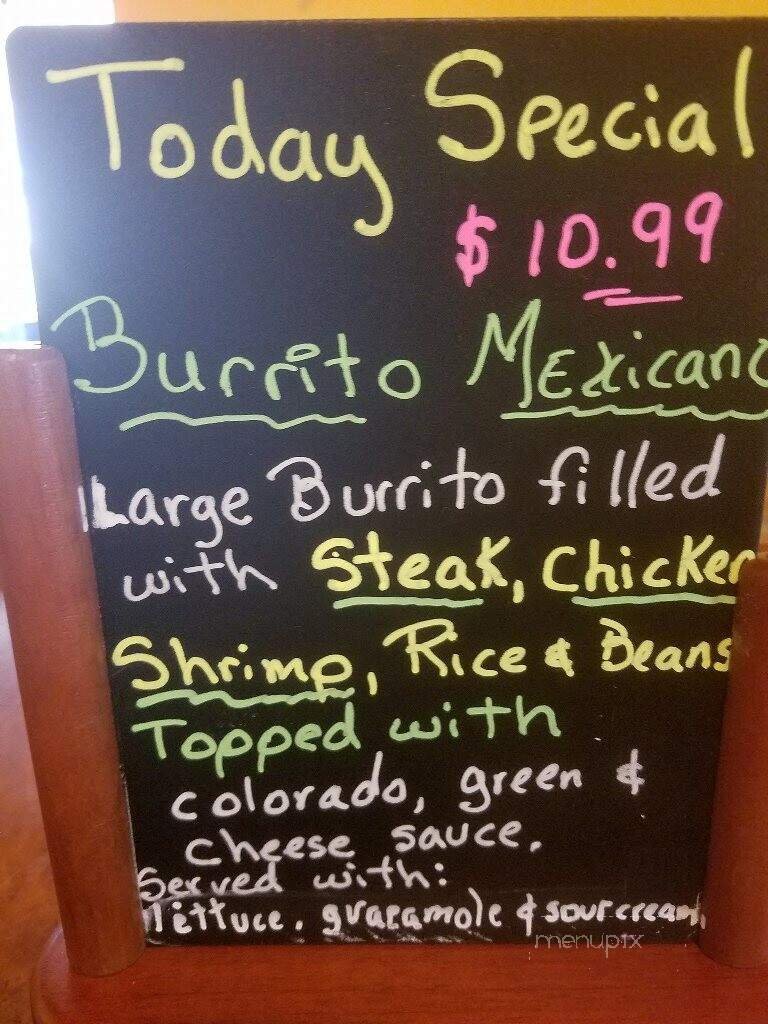 Today Special
$10.99
Burrito Mexicano
Large Burrito filled
with Steak, Chicken
Shrimp, Rice & Beans
Topped with
colorado, green &
cheese sauce.
Served with:
lettuce, guacamole & sour cream,
menupix